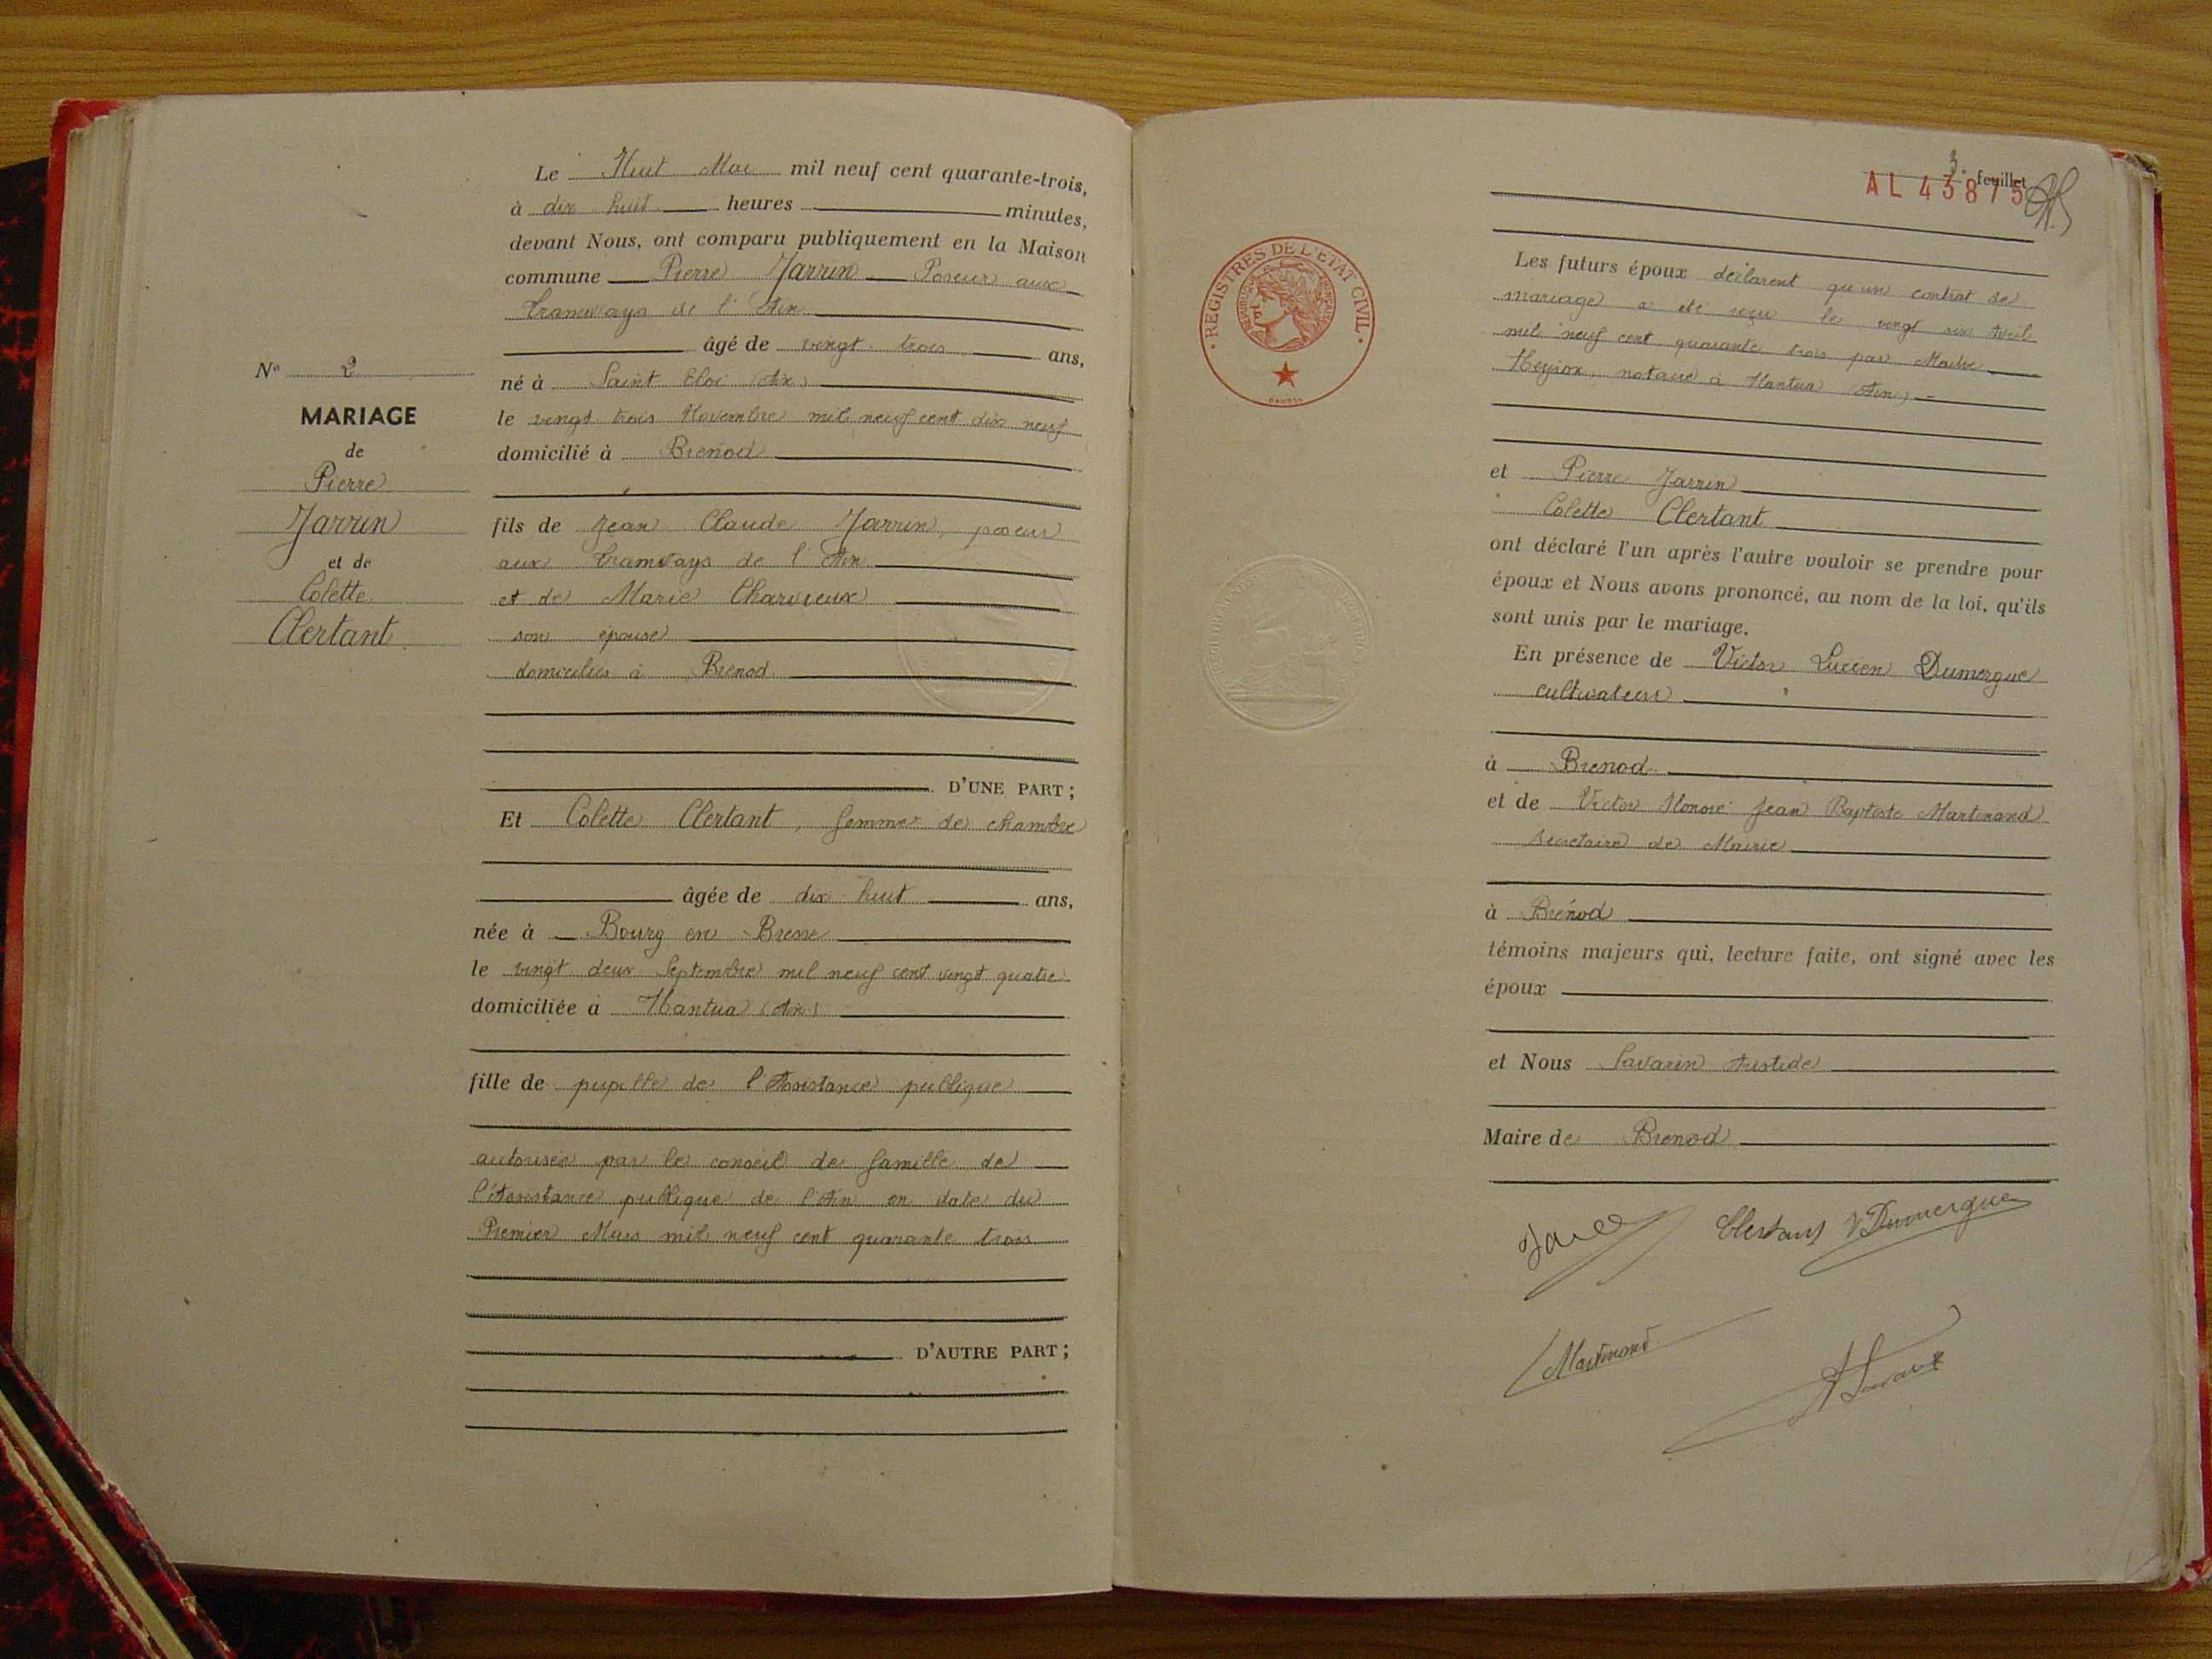 Le Huit Mai mil neuf cent quarante-trois,
à dix huit heures minutes,
devant Nous, ont comparu publiquement en la Maison
commune Pierre Jarrin Poseur aux
tramways de l'Ain
âgé de vingt trois ans,
né à Saint Eloi (Ain)
le vingt trois Novembre mil neuf cent dix neuf
domicilié à Brénod
fils de Jean Claude Jarrin, poseur
aux tramways de l'Ain
et de Marie Charvieux
son épouse
domiciliés à Brénod
D'UNE PART ;
Et Colette Clertant, femme de chambre
âgée de dix-huit ans,
née à Bourg en Bresse
le vingt deux Septembre mil neuf cent vingt quatre
domiciliée à Nantua (Ain)
fille de pupille de l'Assistance publique
autorisée par le conseil de famille de
l'Assistance publique de l'Ain en date du
Premier Mars mil neuf cent quarante trois
D'AUTRE PART ;
N° 2
MARIAGE
de
Pierre
Jarrin
et de
Colette
Clertant
3e feuillet
AL 43875
REGISTRES DE L'ETAT CIVIL
REPUBLIQUE FRANÇAISE
Les futurs époux déclarent qu'un contrat de
mariage a été reçu le vingt six Avril
mil neuf cent quarante trois par Maître
notaire à Nantua (Ain)
et Pierre Jarrin
Colette Clertant
ont déclaré l'un après l'autre vouloir se prendre pour
époux et Nous avons prononcé, au nom de la loi, qu'ils
sont unis par le mariage.
En présence de Victor Lucien Dumergue
cultivateur
à Brénod
et de Victor Honoré Jean Baptiste Martinand
secrétaire de Mairie
à Brénod
témoins majeurs qui, lecture faite, ont signé avec les
époux
et Nous Savarin Aristide
Maire de Brénod
Clertant V Dumergue
Martinand